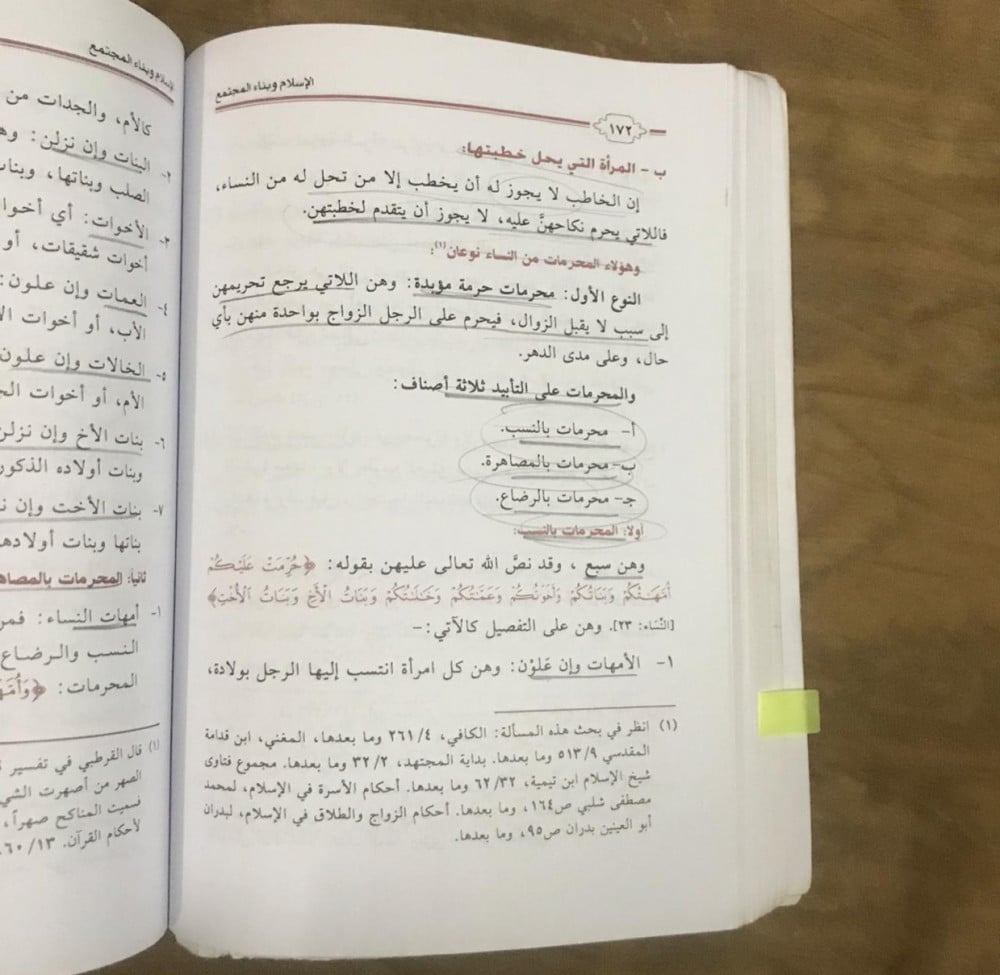 الإسلام وبناء المجتمع
١٧٢
ب - المرأة التي يحل خطبتها:
إن الخاطب لا يجوز له أن يخطب إلا من تحل له من النساء،
فاللاتي يحرم نكاحهنَّ عليه، لا يجوز أن يتقدم لخطبتهن.
وهؤلاء المحرمات من النساء نوعان(١):
النوع الأول: محرمات حرمة مؤبدة: وهن اللاتي يرجع تحريمهن
إلى سبب لا يقبل الزوال، فيحرم على الرجل الزواج بواحدة منهن بأي
حال، وعلى مدى الدهر.
والمحرمات على التأبيد ثلاثة أصناف:
أ- محرمات بالنسب.
ب- محرمات بالمصاهرة.
جـ- محرمات بالرضاع.
أولا: المحرمات بالنسب:
وهن سبع، وقد نصَّ الله تعالى عليهن بقوله: ﴿حُرِّمَتْ عَلَيْكُمْ
أُمَّهَٰتُكُمْ وَبَنَاتُكُمْ وَأَخَوَٰتُكُمْ وَعَمَّٰتُكُمْ وَخَٰلَٰتُكُمْ وَبَنَاتُ الْأَخِ وَبَنَاتُ الْأُخْتِ﴾
[النِّسَاء: ٢٣]. وهن على التفصيل كالآتي: -
١- الأمهات وإن عَلَوْن: وهن كل امرأة انتسب إليها الرجل بولادة،
(١) انظر في بحث هذه المسألة: الكافي، ٢٦١/٤ وما بعدها، المغني، ابن قدامة
المقدسي ٥١٣/٩ وما بعدها. بداية المجتهد، ٣٢/٢ وما بعدها. مجموع فتاوى
شيخ الإسلام ابن تيمية، ٦٢/٣٢ وما بعدها. أحكام الأسرة في الإسلام، لمحمد
مصطفى شلبي ص١٦٤، وما بعدها. أحكام الزواج والطلاق في الإسلام، لبدران
أبو العينين بدران ص٩٥، وما بعدها.
الإسلام وبناء المجتمع
كالأم، والجدات من
٢- البنات وإن نزلن:
الصلب وبناتها،
٣- الأخوات: أي
أخوات شقيقات، أو
٤- العمات وإن علون:
الأب، أو أخوات
٥- الخالات وإن علون
الأم، أو أخوات
٦- بنات الأخ وإن نزلن
وبنات أولاده الذكور
٧- بنات الأخت وإن
بناتها وبنات
ثانيا: المحرمات
١- أمهات النساء:
النسب والرضاع
المحرمات:
(١) قال القرطبي في تفسير
الصهر من أصهرت
فسميت المناكح صهراً،
لأحكام القرآن. ٦٠/١٣